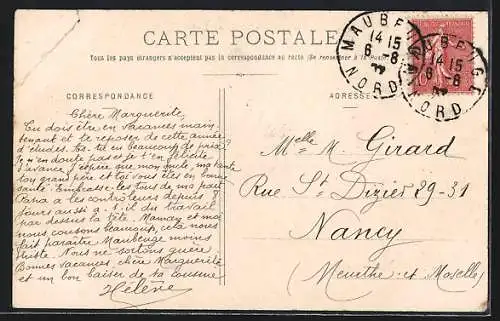 CARTE POSTALE
Tous les pays étrangers n'acceptent pas la correspondance au recto (Se renseigner à la Poste)
MAUBEUGE
14 15
6 - 8
NORD
MAUBEUGE
14 15
6 - 8
NORD
CORRESPONDANCE
ADRESSE
Chère Marguerite,
Tu dois être en vacances main-
tenant et te reposer de cette année
d'études. As-tu eu beaucoup de prix?
Je n'en doute pas et je t'en félicite
d'avance. J'espère que mon oncle, ma tante
ton grand père et toi vous êtes en bonne
santé. Embrasse-les tous de ma part
Papa a les contrôleurs depuis
jours aussi a-t-il du travail
par dessus la tête. Maman et moi
nous cousons beaucoup, cela nous
fait paraître Maubeuge moins
triste. Nous ne sortons guère.
Bonnes vacances chère Marguerite
et un bon baiser de ta cousine
Hélène
Melle M. Girard
Rue St Dizier 29-31
Nancy
(Meurthe-et-Moselle)